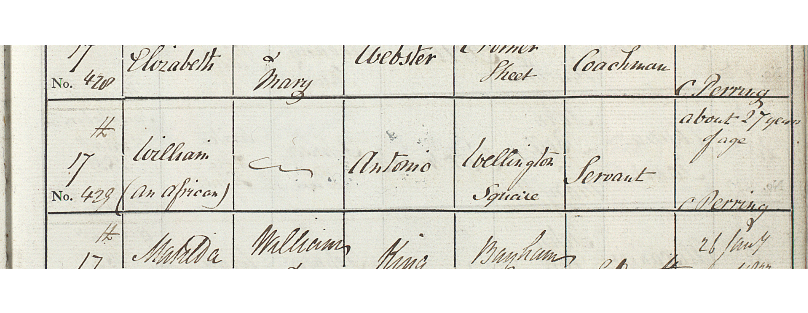 17 Elizabeth & Webster Cromer Coachman
No. 428 Mary Street C Perring
about 27 years
of age
17 William Antonio Wellington Servant
No. 429 (an African) Square C Perring
Matilda William King 26 Jany
17